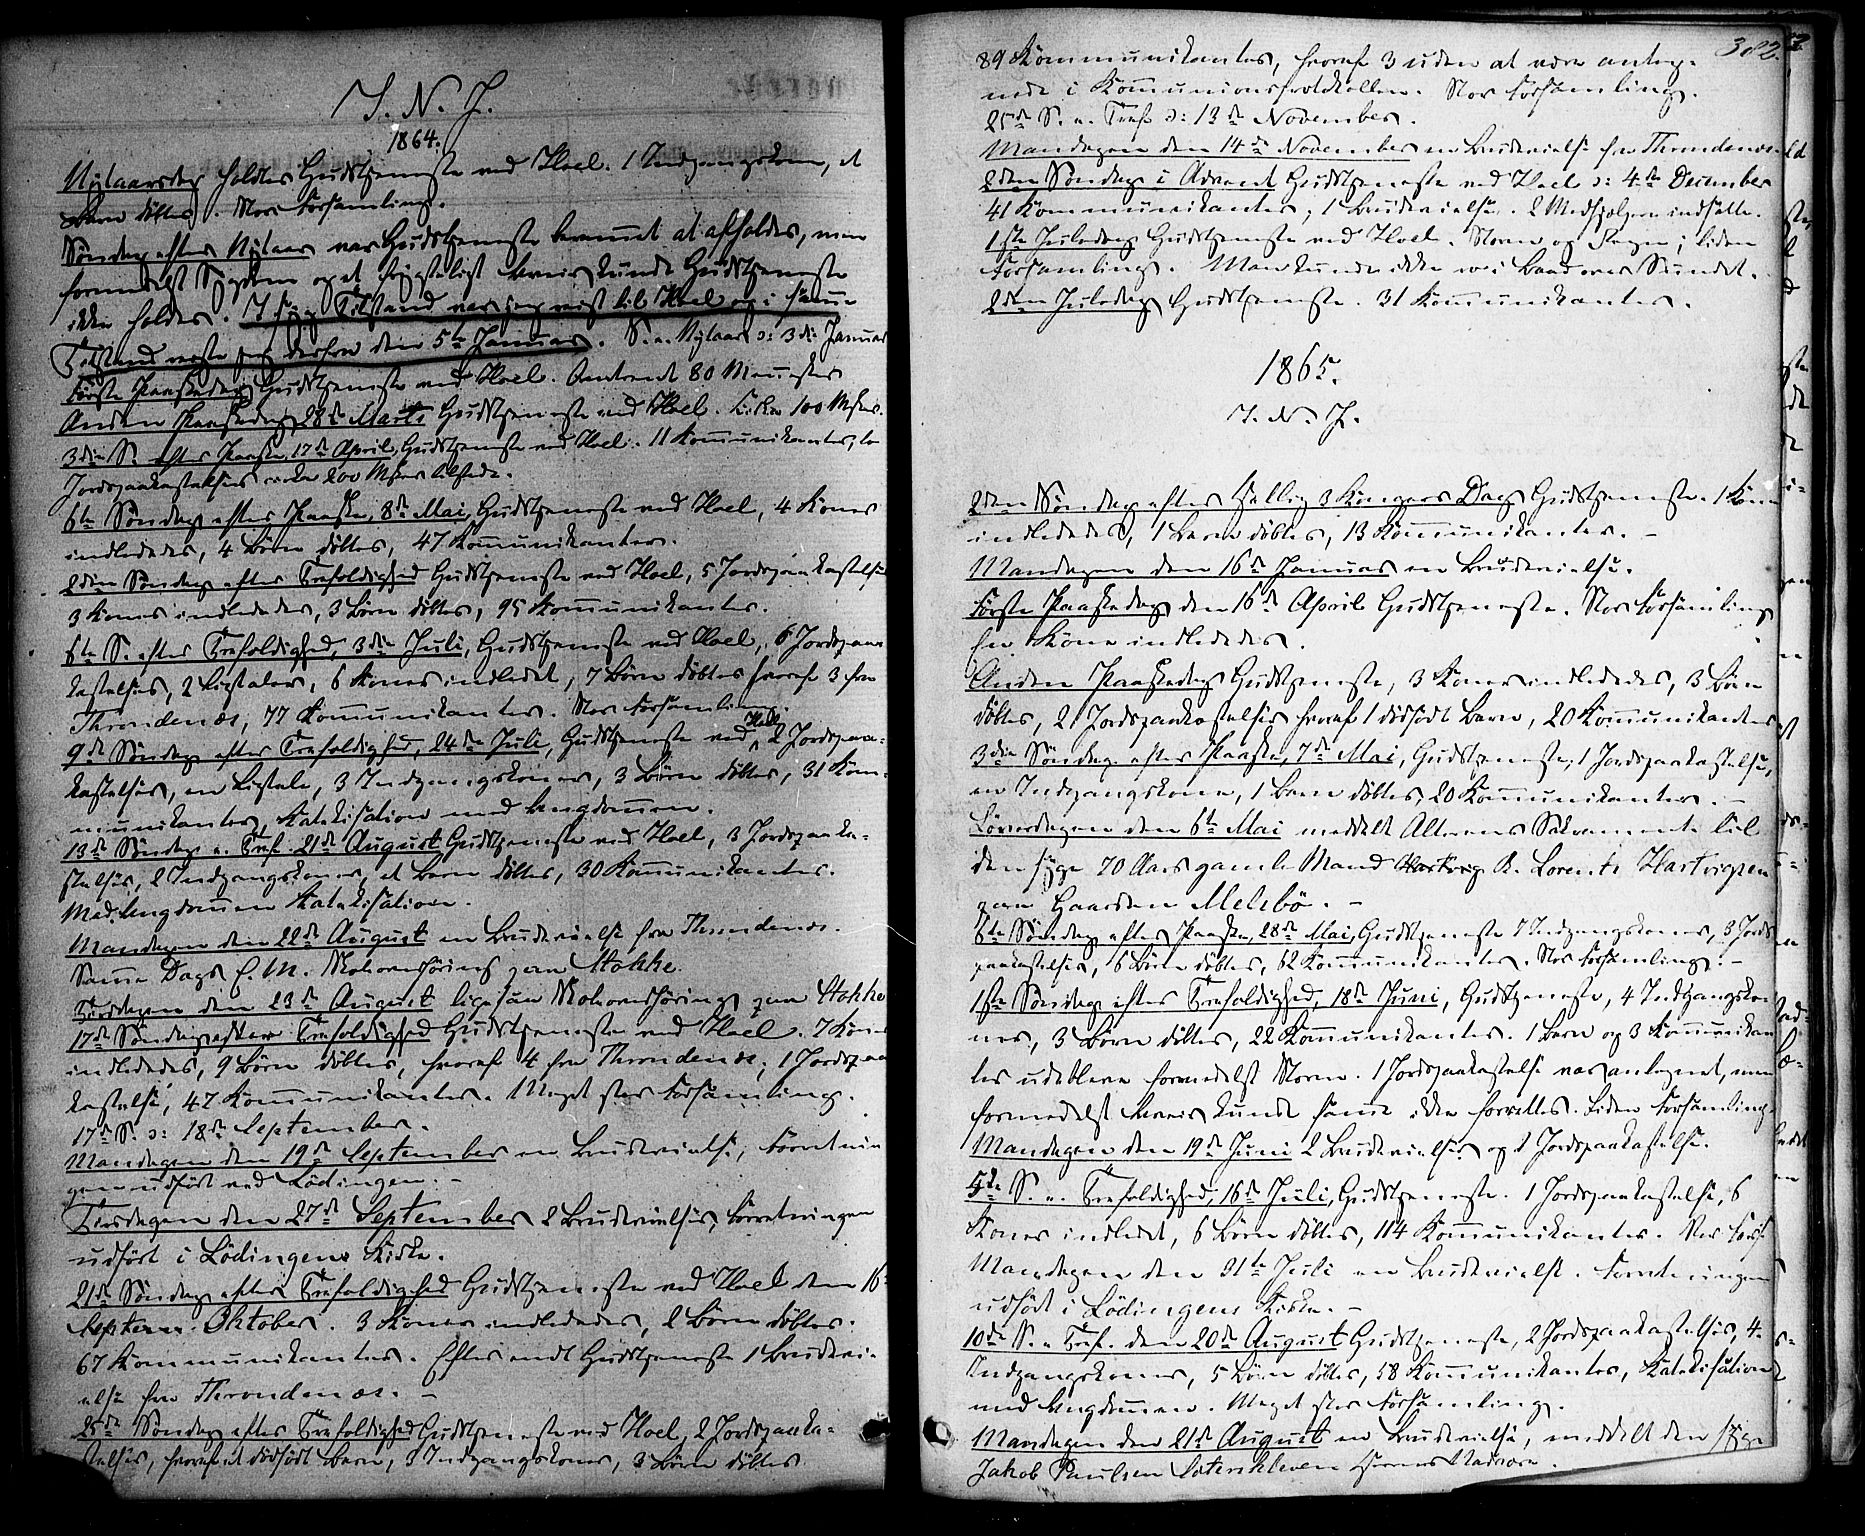 I. N. J.
1864.
Nytaarsdag holdtes Gudstjeneste ved Hoel. 1 Indgangskone, et
Barn döbtes. Stor Forsamling.
Söndag efter Nytaar var Gudstjeneste berammet at afholdes, men
formedelst Sygdom og et frygteligt Veir kunde Gudstjeneste
ikke holdes. I syg Tilstand var jeg reist til Hoel og i samme
Tilstand reiste jeg derfra den 5te Januar. S. e. Nytaar ɔ: 3die Januar
Förste Paaskedag Gudstjeneste ved Hoel. Omtrent 80 Mennesker
Anden Paaskedag 28de Marts Gudstjeneste ved Hoel. Cirka 100 Msker.
3die S. efter Paaske, 17de April, Gudstjeneste ved Hoel. 11 Kommunikanter, to
Jordspaakastelser cirka 200 Msker tilstede.
6te Söndag efter Paaske, 8de Mai, Gudstjeneste ved Hoel, 4 Koner
indlededes, 4 Börn döbtes, 47 Kommunikanter.
2den Söndag efter Trefoldighed Gudstjeneste ved Hoel, 5 Jordspaakastelser
3 Koner indlededes, 3 Börn döbtes, 95 Kommunikanter.
6te S. efter Trefoldighed, 3die Juli, Gudstjeneste ved Hoel, 6 Jordspaa
kastelser, 2 Ligtaler, 6 Koner indledet, 7 Börn döbtes hvoraf 3 fra
Throndenæs, 77 Kommunikanter. Stor Forsamling.
9de Söndag efter Trefoldighed, 24de Juli, Gudstjeneste ved Hoel, 2 Jordspaa-
kastelser, en Ligtale, 3 Indgangskoner, 3 Börn döbtes, 31 Kom-
munikanter, Katekisation med Ungdommen.
13de Söndag e. Tref. 21de August Gudstjeneste ved Hoel, 3 Jordspaaka-
stelser, 2 Indgangskoner, et Barn döbtes, 30 Kommunikanter.
Med Ungdommen Katekisation.
Mandagen den 22de August en Brudevielse fra Throndenæs.
Samme Dags E. M. Konfirmationsforhöring paa Hokke.
Tirsdagen den 23de August ligesaa paa Hokke
17de Söndag efter Trefoldighed Gudstjeneste ved Hoel. 7 Koner
indlededes, 9 Börn döbtes, hvoraf 4 fra Throndenæs; 1 Jordspaa
kastelse, 47 Kommunikanter. Meget stor Forsamling.
17de S. ɔ: 18de September.
Mandagen den 19de September en Brudevielse, Forretnin
gen udfört ved Lödingen. –
Tirsdagen den 27de September 2 Brudevielser, Forretningen
udfört i Lödingens Kirke.
21de Söndag efter Trefoldighed Gudstjeneste ved Hoel den 16de
Septem. Oktober. 3 Koner indlededes, 2 Börn döbtes.
67 Kommunikanter. Efter endt Gudstjeneste 1 Brudevi-
else fra Throndenæs. –
25de Söndag efter Trefoldighed Gudstjeneste ved Hoel, 2 Jordspaaka-
stelser, hvoraf et dödfödt Barn, 3 Indgangskoner, 3 Börn döbtes
382.
89 Kommunikanter, hvoraf 3 uden at være anteg-
nede i Kommunionsprotokollen. Stor Forsamling.
25de S. e. Tref. ɔ: 13de November.
Mandagen den 14de November en Brudevielse fra Throndenæs
2den Söndag i Advent Gudstjeneste ved Hoel ɔ: 4de December
41 Kommunikanter, 1 Brudevielse. 2 Medhjelpere indsatte.
1ste Juledag Gudstjeneste ved Hoel. Storm og Regn; liden
Forsamling. Man kunde ikke ro i Baad over Sundet.
2den Juledag Gudstjeneste. 31 Kommunikanter.
1865.
I. N. J.
2den Söndag efter Hellig 3 Kongers Dag Gudstjeneste. 1 Kone
indlededes, 1 Barn döbtes, 13 Kommunikanter. –
Mandagen den 16de Januar en Brudevielse.
Förste Paaskedag den 16de April Gudstjeneste. Stor Forsamling
En Kone indlededes.
Anden Paaskedag Gudstjeneste, 3 Koner indlededes, 3 Börn
döbtes, 2 Jordspaakastelser hvoraf 1 dödfödt Barn, 20 Kommunikanter
3die Söndag efter Paaske, 7de Mai, Gudstjeneste, 1 Jordspaakastelse,
en Indgangskone, 1 Barn döbtes, 20 Kommunikanter. –
Löverdagen den 6te Mai meddelt Alterens Sakramente til
den syge 70 Aars gamle Mand Hartvig R. Lorents Hartvigsen
paa Gaarden Melebö. –
6te Söndag efter Paaske, 28de Mai, Gudstjeneste 7 Indgangskoner, 3 Jords
paakastelser, 6 Börn döbtes, 62 Kommunikanter. Stor Forsamling. –
1ste Söndag efter Trefoldighed, 18de Juni, Gudstjeneste, 4 Indgangsko
ner, 3 Börn döbtes, 22 Kommunikanter. 1 Barn og 3 Kommunikan
ter udebleve formedelst Storm. 1 Jordspaakastelse var antegnet, men
formedelst Veiret kunde samme ikke forrettes. Liden Forsamling.
Mandagen den 19de Juni 2 Brudevielser og 1 Jordspaakastelse.
5te S. e. Trefoldighed, 16de Juli, Gudstjeneste. 1 Jordspaakastelse, 6
Koner indledet, 6 Börn döbtes, 114 Kommunikanter. Stor Fors.
Mandagen den 31te Juli en Brudevielse. Forretningen
udfört i Lödingens Kirke. –
10de S. e. Tref. den 20de August Gudstjeneste, 2 Jordspaakastelser, 4
Indgangskoner, 5 Börn döbtes, 58 Kommunikanter, Katekisation
med Ungdommen. Meget stor Forsamling.
Mandagen den 21de August en Brudevielse, meddelt den syge
Jakob Paulsen Sæterskleven Herrens Nadvere.